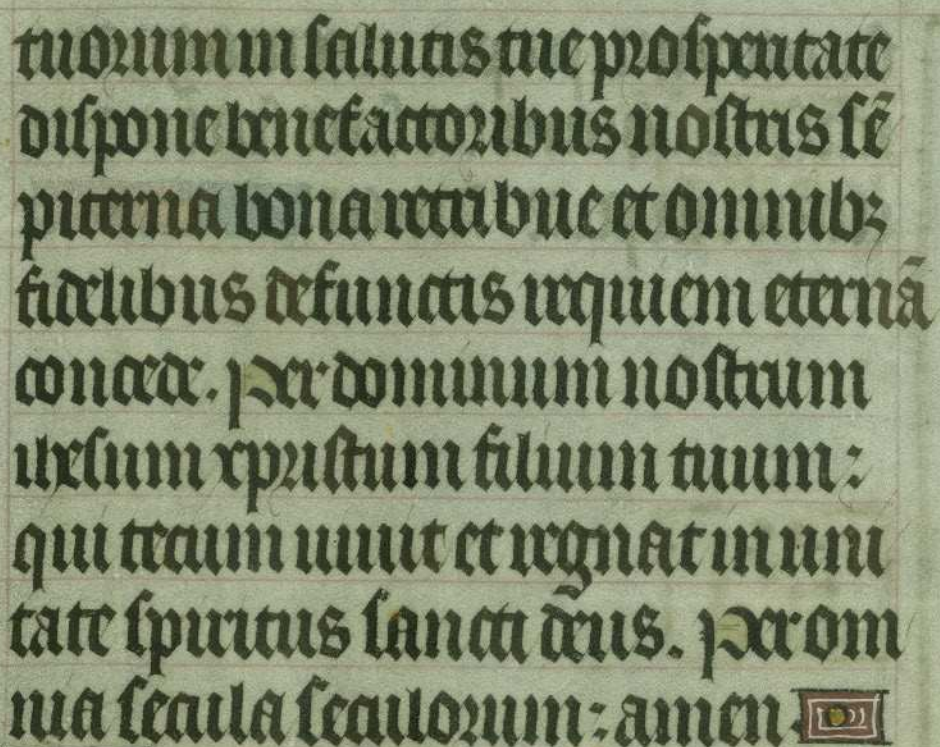 tuorum in salutis tue prosperitate
dispone benefactoribus nostris sē
piterna bona retribue et omnibꝫ
fidelibus defunctis requiem eternā
concede. Per dominum nostrum
ihesum xpristum filium tuum:
qui tecum uiuit et regnat in uni
tate spiritus sancti deus. Per om
nia secula seculorum: amen.